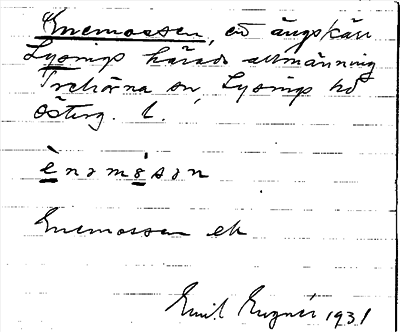 Enemossen, en ängskärr
Lysings härads allmänning
Trehörna sn, Lysings hd
Österg. l.
ènəmɵ̀sən
Enemossen ek
Emil Eugnér 1931